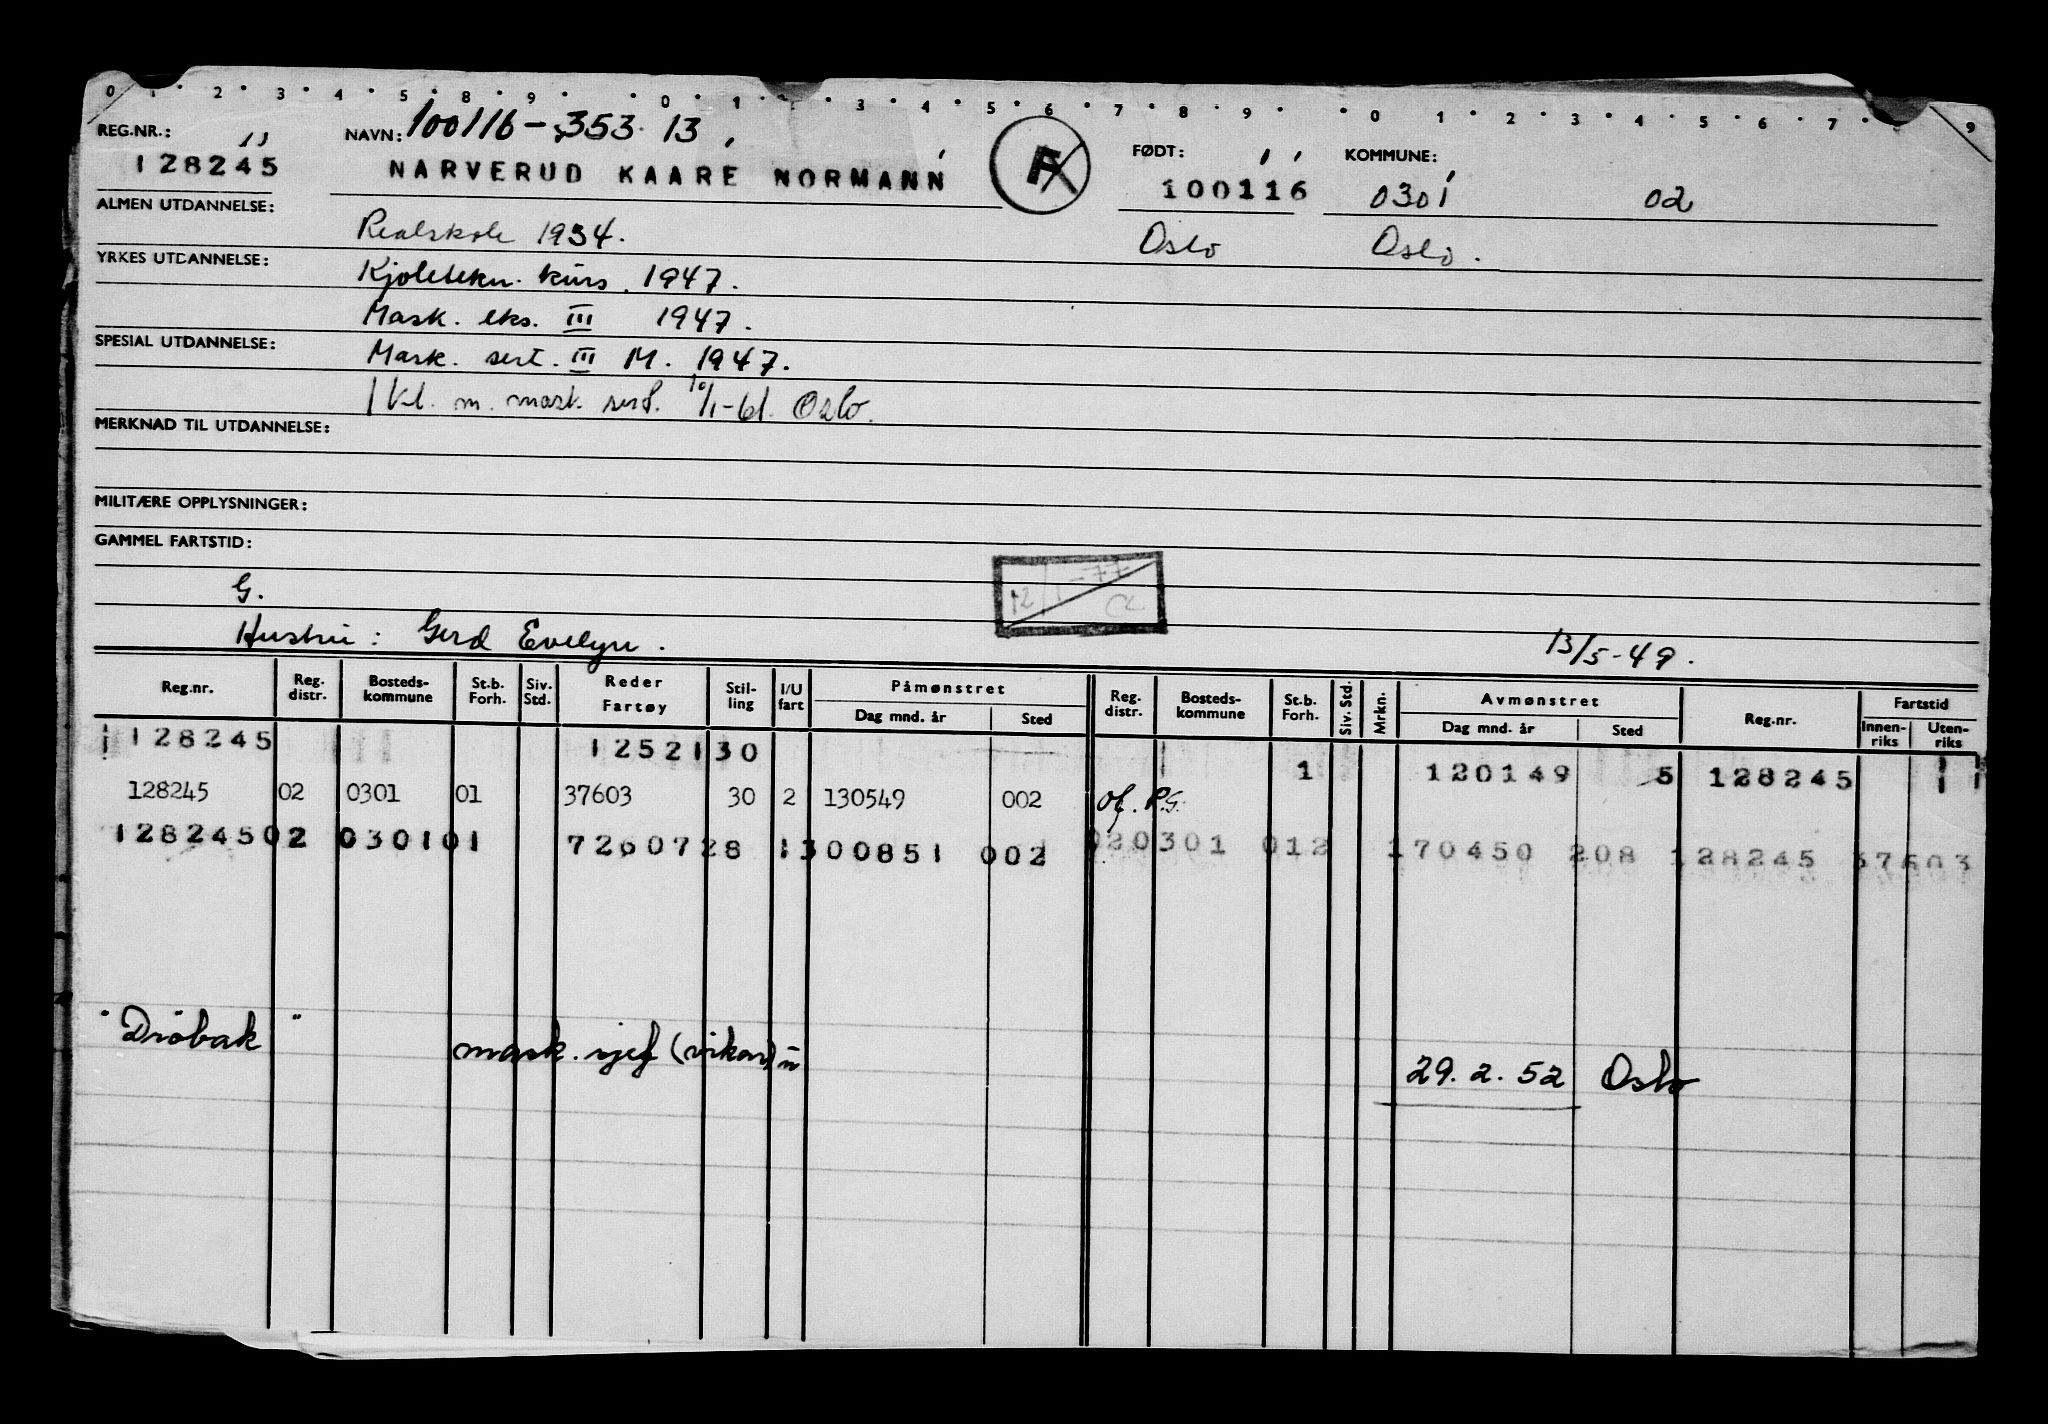 0 1 2 3 4 5 8 9 0 1 3 4 5 6 7 8 9 0 1 2 3 4 5 6 7 9
REG.NR.: NAVN: 100116-353 13 FØDT: KOMMUNE:
128245 NARVERUD KAARE NORMANN F 100116 0301 02
ALMEN UTDANNELSE: Realskole 1934. Oslo Oslo.
YRKES UTDANNELSE: Kjøletekn. kurs. 1947.
Mask. eks. III 1947.
SPESIAL UTDANNELSE: Mask. sert. III M. 1947.
1 kl. m. mask. sert. 10/1-61. Oslo.
MERKNAD TIL UTDANNELSE:
MILITÆRE OPPLYSNINGER:
GAMMEL FARTSTID:
12/1-77
G.
Hustru: Gerd Evelyn. 13/5-49.
Reg.nr. Reg. distr. Bosteds-kommune St.b. Forh. Siv. Std. Reder Fartøy Stil-ling I/U fart Påmønstret Dag mnd. år Sted Reg. distr. Bosteds-kommune St.b. Forh. Siv. Std. Mrkn. Avmønstret Dag mnd. år Sted Reg.nr. Fartstid Innen-riks Uten-riks
128245 1252130 1 120149 5 128245
128245 02 0301 01 37603 30 2 130549 002 Of. P.G.
12824502 030101 7260728 1300851 002 020301 012 170450 208 128245 37603
"Drøbak" mask. sjef (vikar) u 29.2.52 Oslo